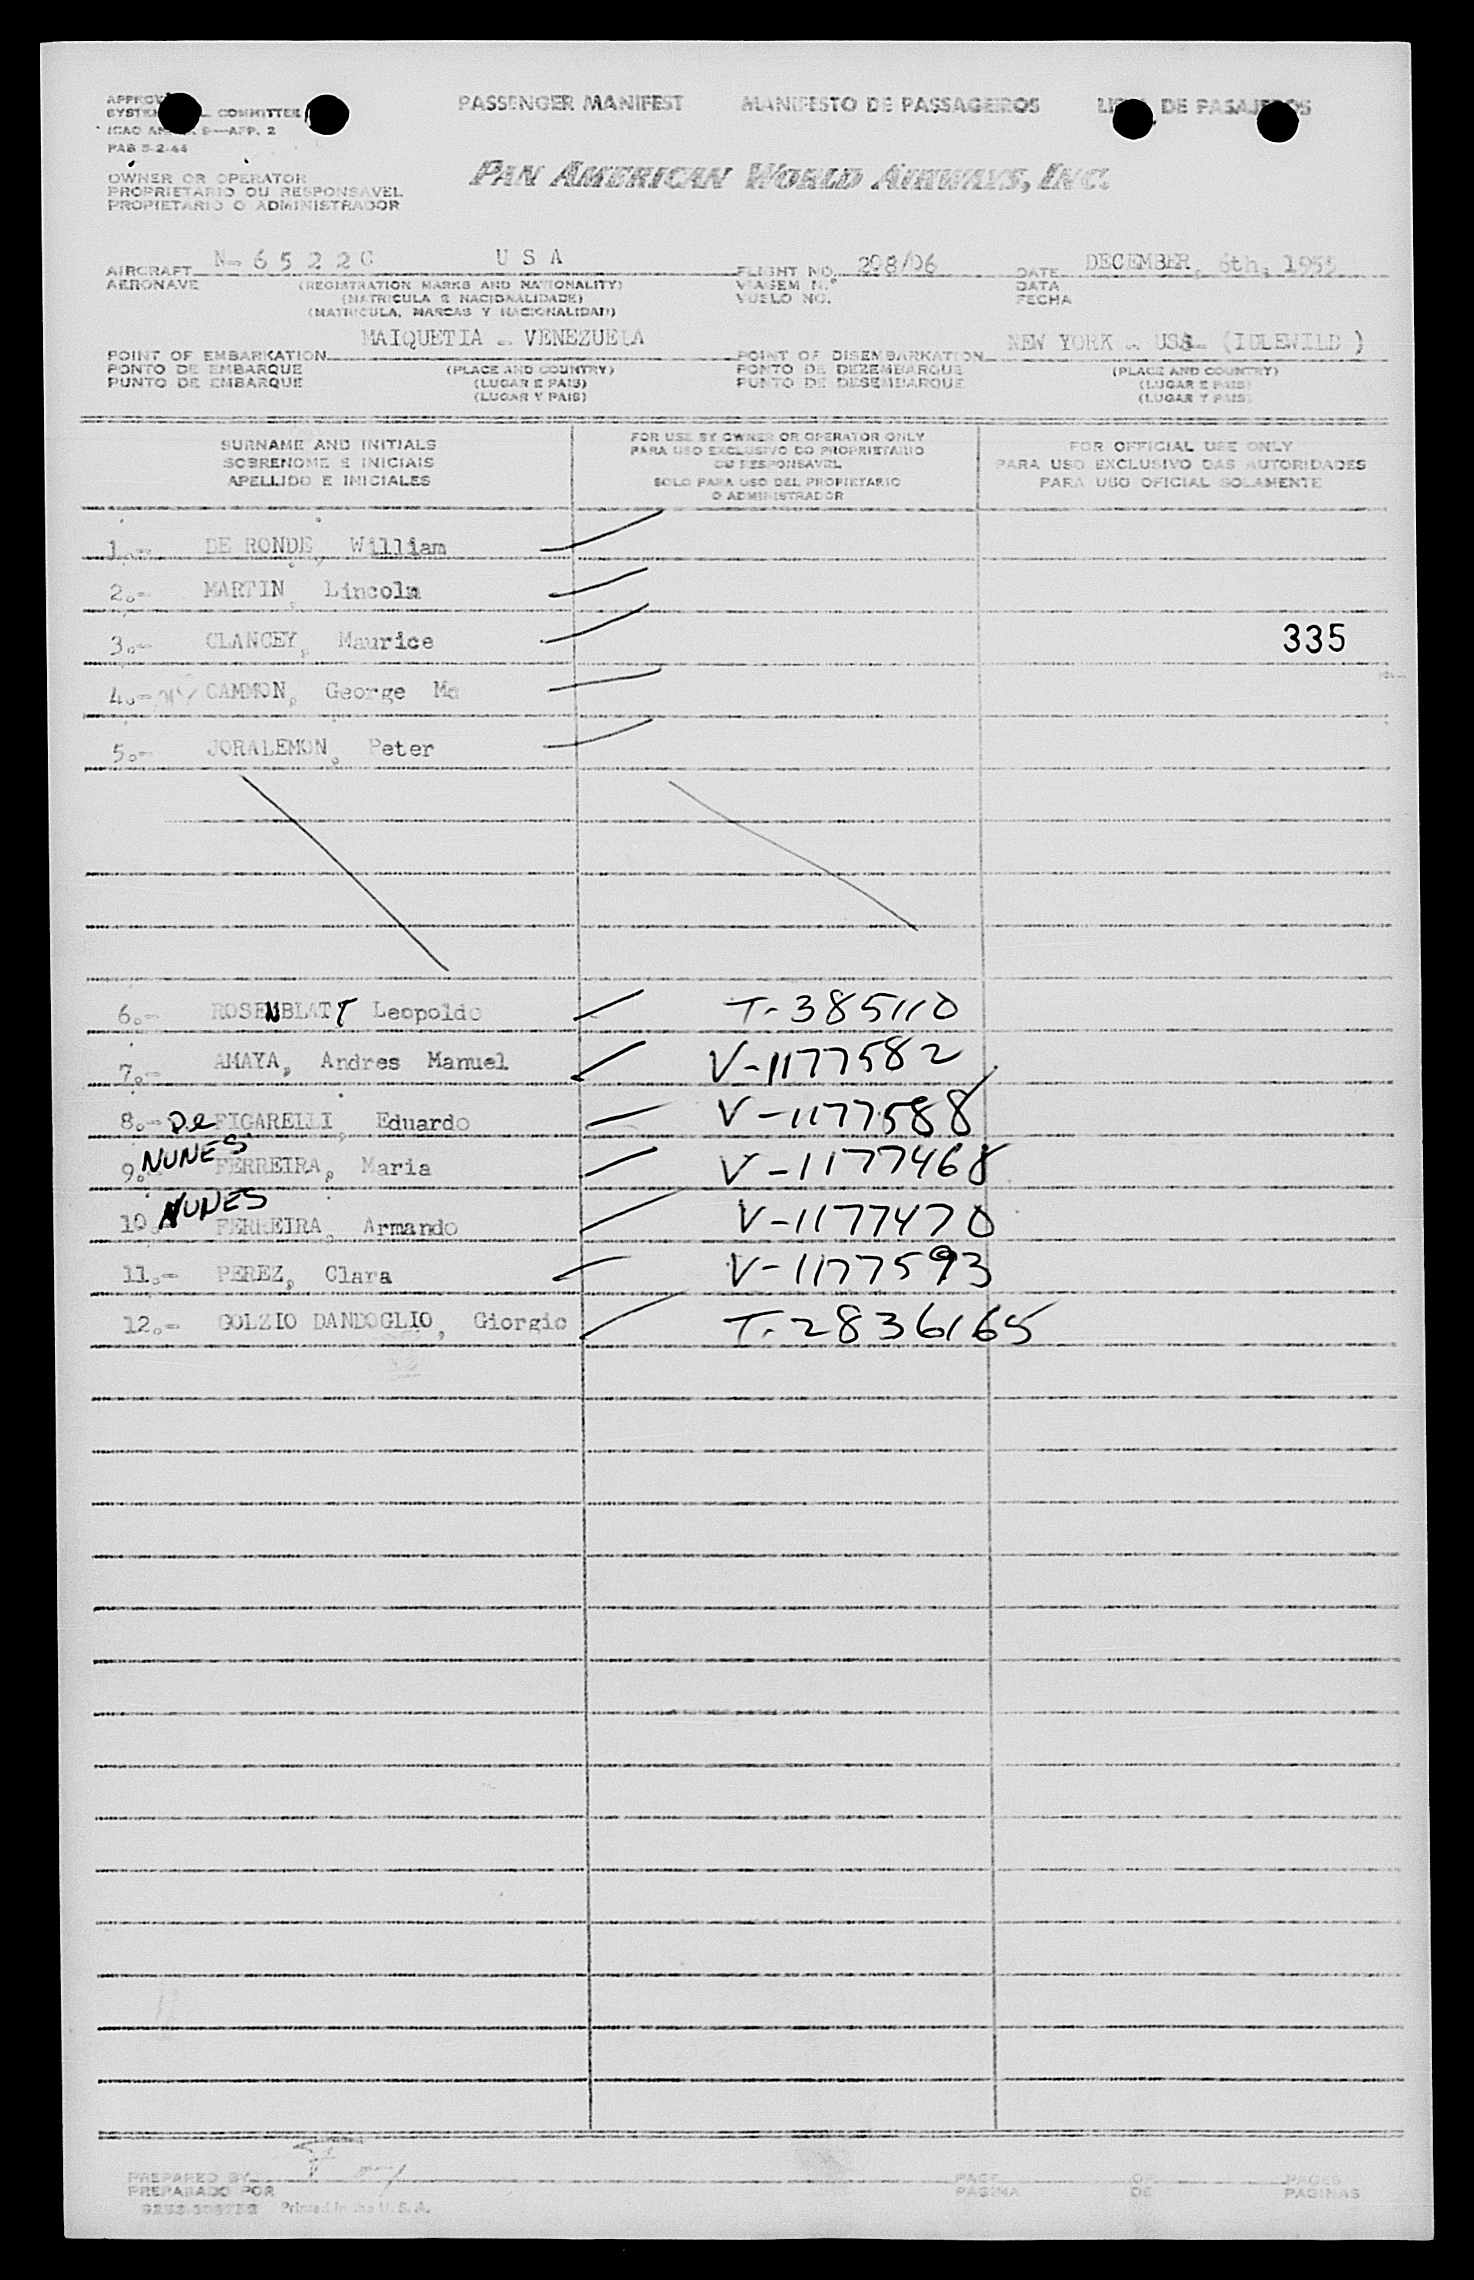 PASSENGER MANIFEST MANIFESTO DE PASSAGEIROS DE PASAJEROS
COMMITTEE
APP. 2
OWNER OR OPERATOR
PROPRIETARIO OU RESPONSAVEL
PROPIETARIO O ADMINISTRADOR
PAN AMERICAN WORLD AIRWAYS, INC.
AIRCRAFT N-6522C USA FLIGHT NO. 298/06 DATE DECEMBER, 6th, 1955
AERONAVE (REGISTRATION MARKS AND NATIONALITY) VIAGEM N.º DATA
(MATRICULA E NACIONALIDADE) VUELO NO. FECHA
(MATRICULA, MARCAS Y NACIONALIDAD)
POINT OF EMBARKATION MAIQUETIA - VENEZUELA POINT OF DISEMBARKATION NEW YORK - USA- (IDLEWILD )
PONTO DE EMBARQUE (PLACE AND COUNTRY) PONTO DE DEZEMBARQUE (PLACE AND COUNTRY)
PUNTO DE EMBARQUE (LUGAR E PAIS) PUNTO DE DESEMBARQUE (LUGAR E PAIS)
(LUGAR Y PAIS) (LUGAR Y PAIS)
SURNAME AND INITIALS
SOBRENOME E INICIAIS
APELLIDO E INICIALES
FOR USE BY OWNER OR OPERATOR ONLY
PARA USO EXCLUSIVO DO PROPRIETARIO
OU RESPONSAVEL
SOLO PARA USO DEL PROPIETARIO
O ADMINISTRADOR
FOR OFFICIAL USE ONLY
PARA USO EXCLUSIVO DAS AUTORIDADES
PARA USO OFICIAL SOLAMENTE
1.- DE RONDE, William
2.- MARTIN, Lincoln
3.- CLANCEY, Maurice 335
4.- CAMMON, George Mc
5.- JORALEMON, Peter
6.- ROSENBLATT Leopoldo T-385110
7.- AMAYA, Andres Manuel V-1177582
8.- De FIGARELLI, Eduardo V-1177588
9.- NUNES FERREIRA, Maria V-1177468
10.- NUNES FERREIRA, Armando V-1177470
11.- PEREZ, Clara V-1177593
12.- GOLZIO DANDOGLIO, Giorgio T-2836165
PREPARED BY PAGE OF PAGES
PREPARADO POR PAGINA DE PAGINAS
Printed in the U.S.A.